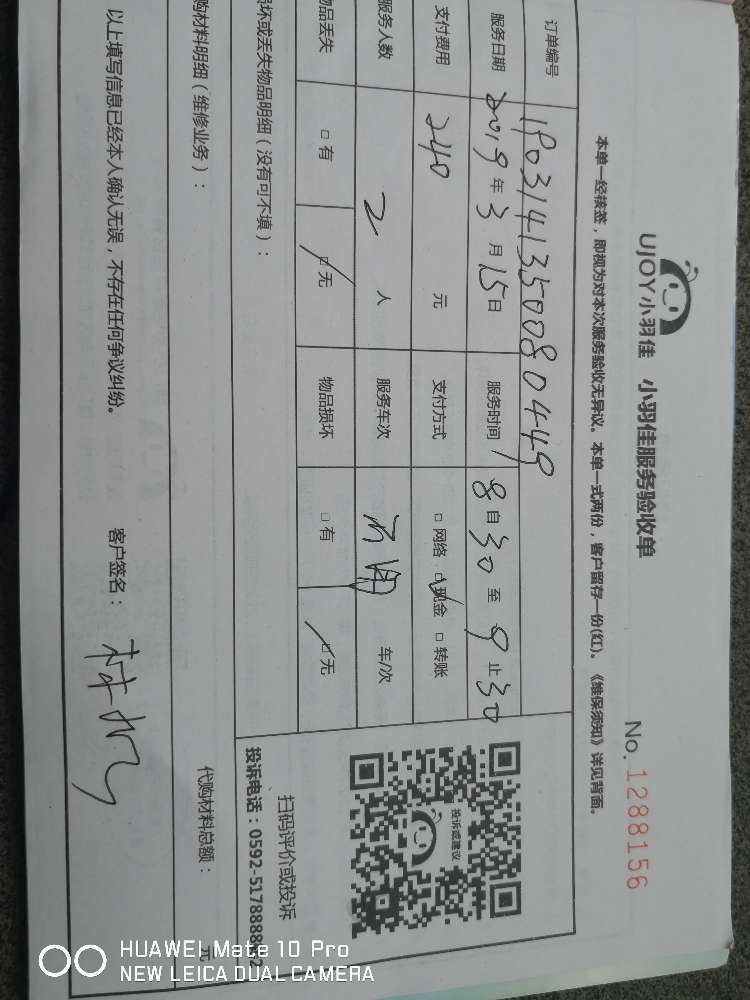 UJOY小羽佳 小羽佳服务验收单
No. 1288156
本单一经核签，即视为对本次服务验收无异议。本单一式两份，客户留存一份(红)。《维保须知》详见背面。
订单编号 1P03141350080449
服务日期 2019年3月15日 服务时间 8自30至9止30
支付费用 240元 支付方式 □网络 □现金 □转账
服务人数 2人 服务车次 车/次
物品丢失 □有 □无 物品损坏 □有 □无
损坏或丢失物品明细（没有可不填）：
投诉或建议
扫码评价或投诉
投诉电话：0592-5178888
购材料明细（维修业务）： 代购材料总额： 元
以上填写信息已经本人确认无误，不存在任何争议纠纷。 客户签名：
HUAWEI Mate 10 Pro
NEW LEICA DUAL CAMERA